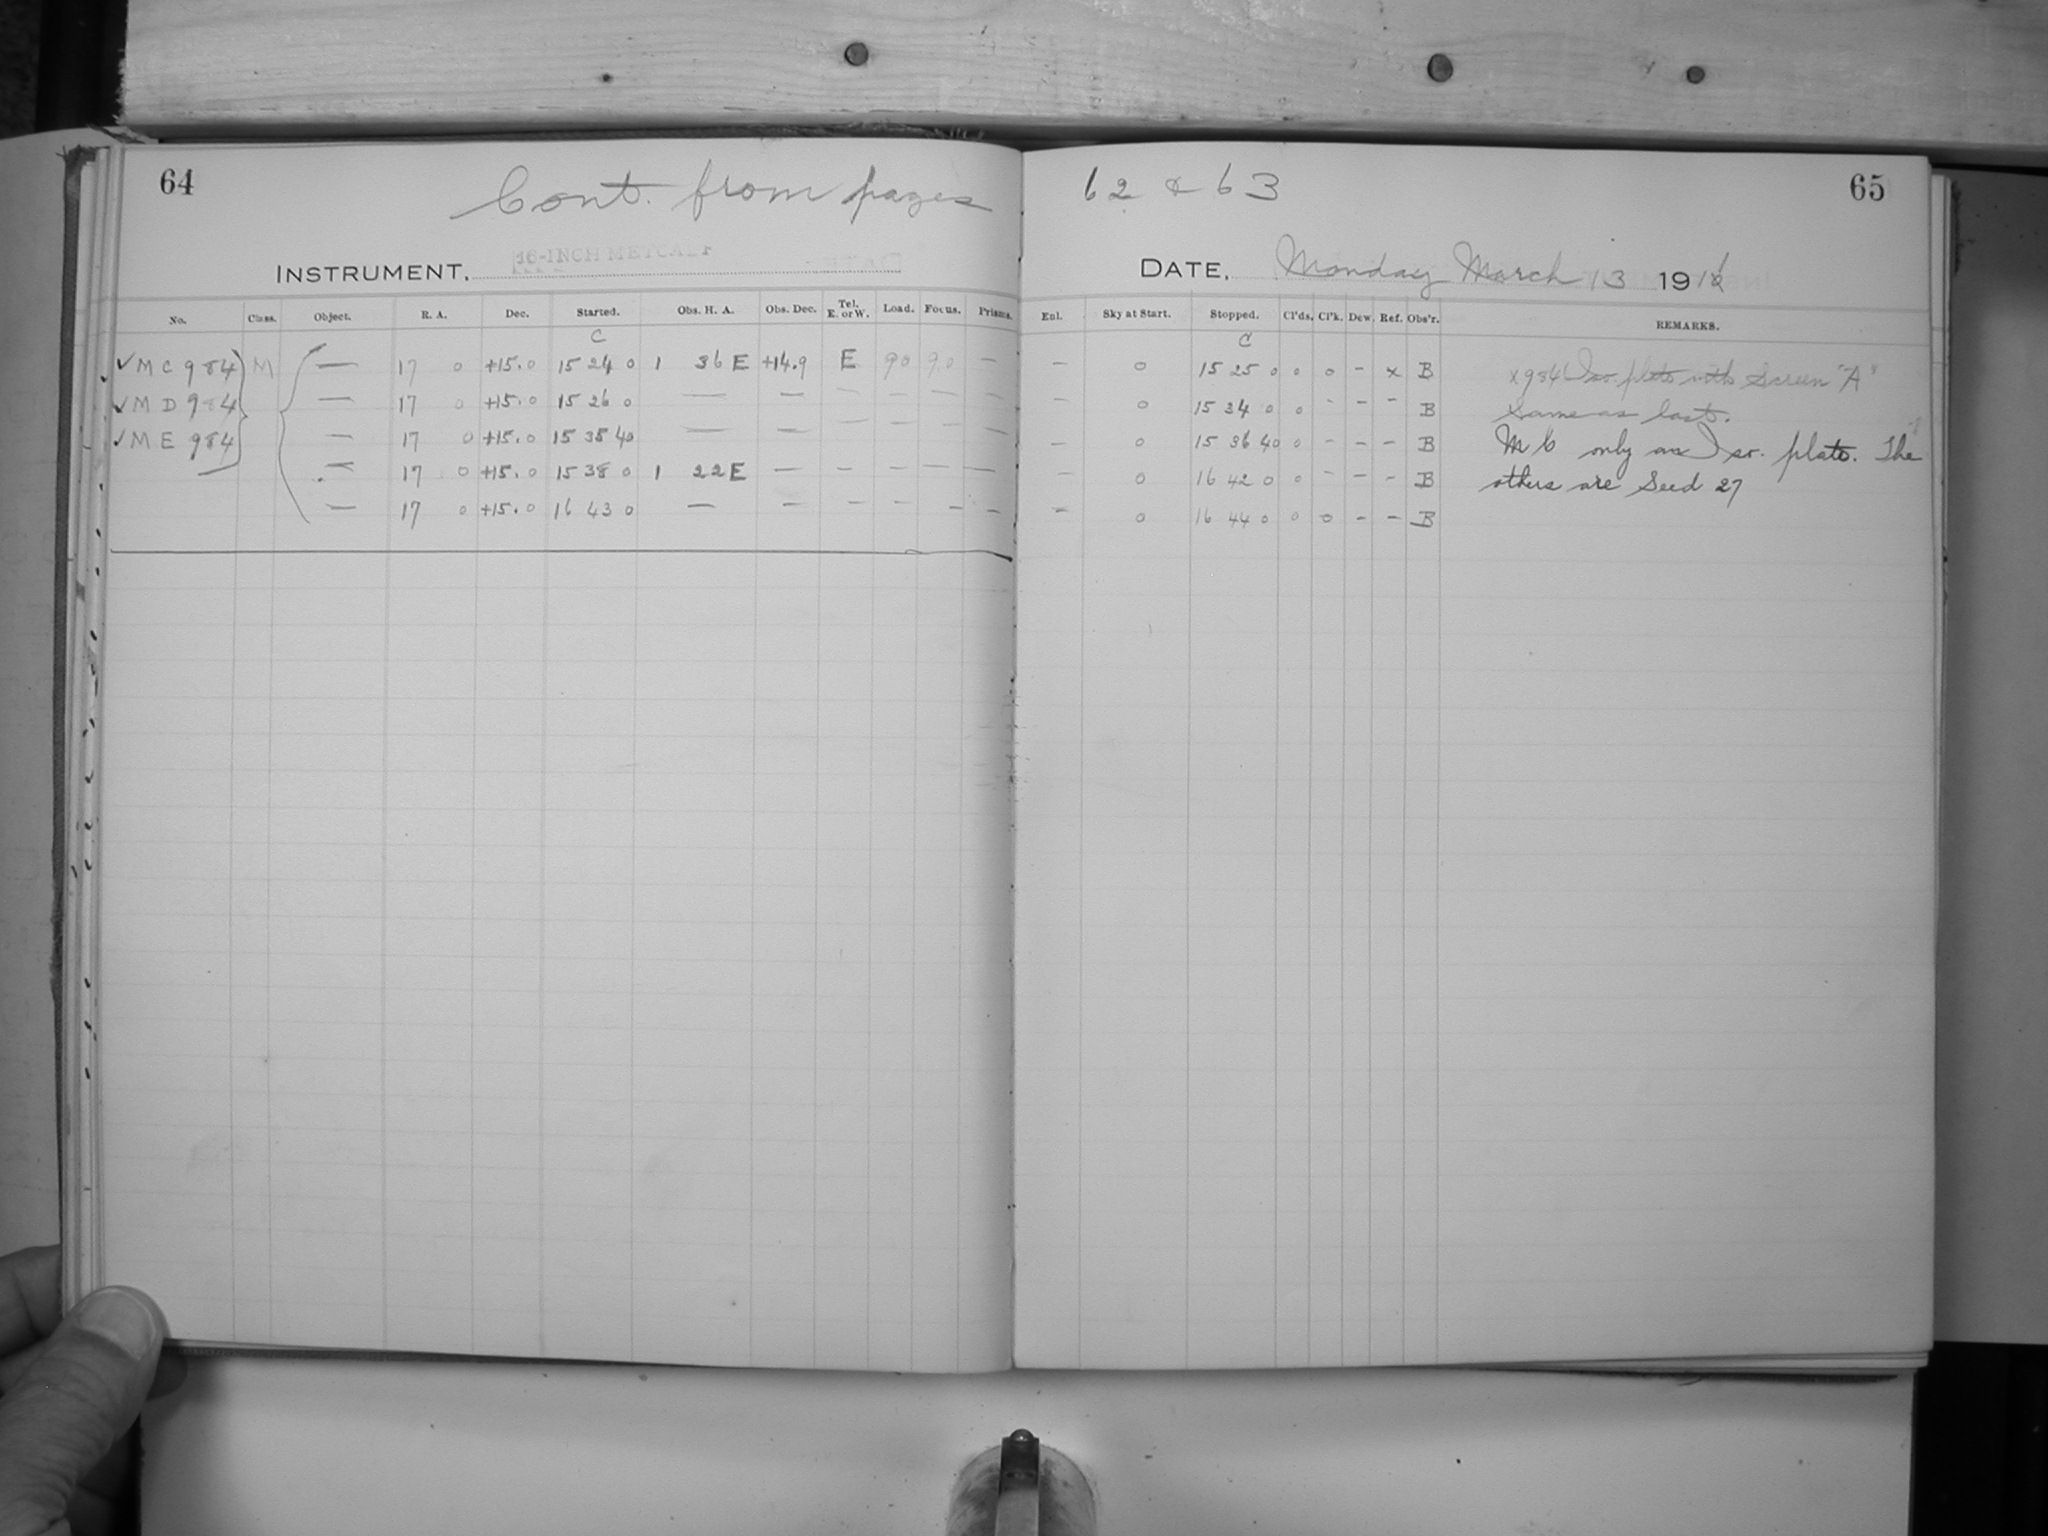 64
Cont. from pages
62 & 63
65
INSTRUMENT. 16-INCH METCALF
DATE. Monday March 13 1916
No. Class. Object. R. A. Dec. Started. Obs. H. A. Obs. Dec. Tel. E. or W. Load. Focus. Prisms. Enl. Sky at Start. Stopped. Cl'ds. Cl'k. Dew. Ref. Obs'r. REMARKS.
C C
✓ M C 984 M — 17 0 +15.0 15 24 0 1 36 E +14.9 E 90 9.0 — — 0 15 25 0 0 0 - x B x984 Iso. plate with Screen "A"
✓ M D 984 — 17 0 +15.0 15 26 0 — — — — — — — 0 15 34 0 0 - - - B Same as last.
✓ M E 984 — 17 0 +15.0 15 35 40 — — — — — — — 0 15 36 40 0 - - - B M C only on Iso. plate. The
— 17 0 +15.0 15 38 0 1 22 E — — — — — — 0 16 42 0 0 - - - B others are Seed 27
— 17 0 +15.0 16 43 0 — — — — — — — 0 16 44 0 0 0 - - B